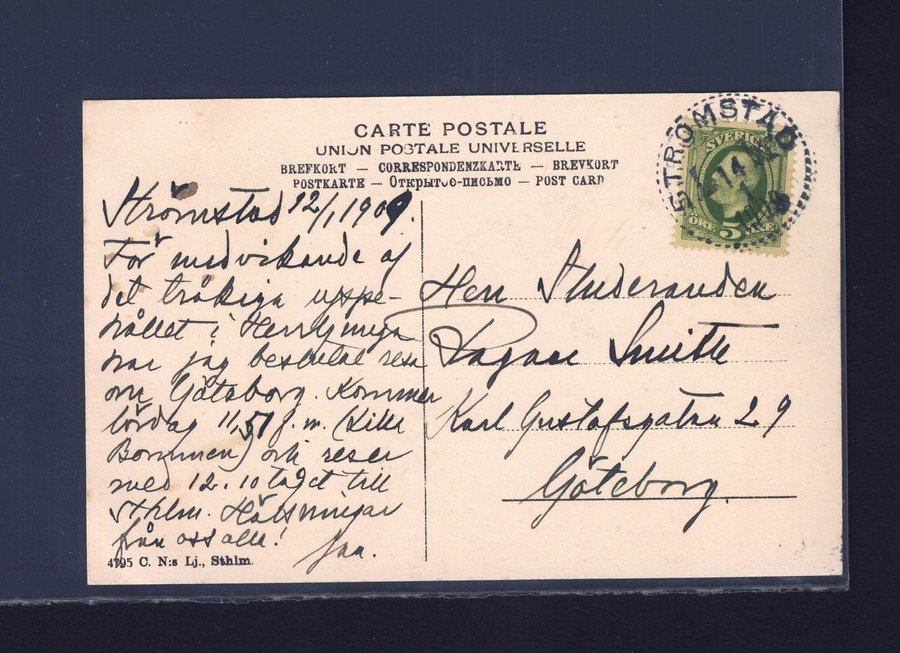 CARTE POSTALE
UNION POSTALE UNIVERSELLE
BREFKORT — CORRESPONDENZKARTE — BREVKORT
POSTKARTE — Открытое-письмо — POST CARD
STRÖMSTAD
14
SVERIGE
ÖRE 5 ÖRE
Strömstad 12/1 1909.
För undvikande af
det tråkiga uppe-
hållet i Herrljunga
har jag beslutat resa
om Göteborg. Kommer
lördag 11,51 f.m. (Lilla
Bommen) och reser
med 12.10 tåget till
Sthlm. Hälsningar
från oss alla!
Herr Studeranden
Smith
Karl Gustafsgatan 29
Göteborg.
4795 C. N:s Lj., Sthlm.